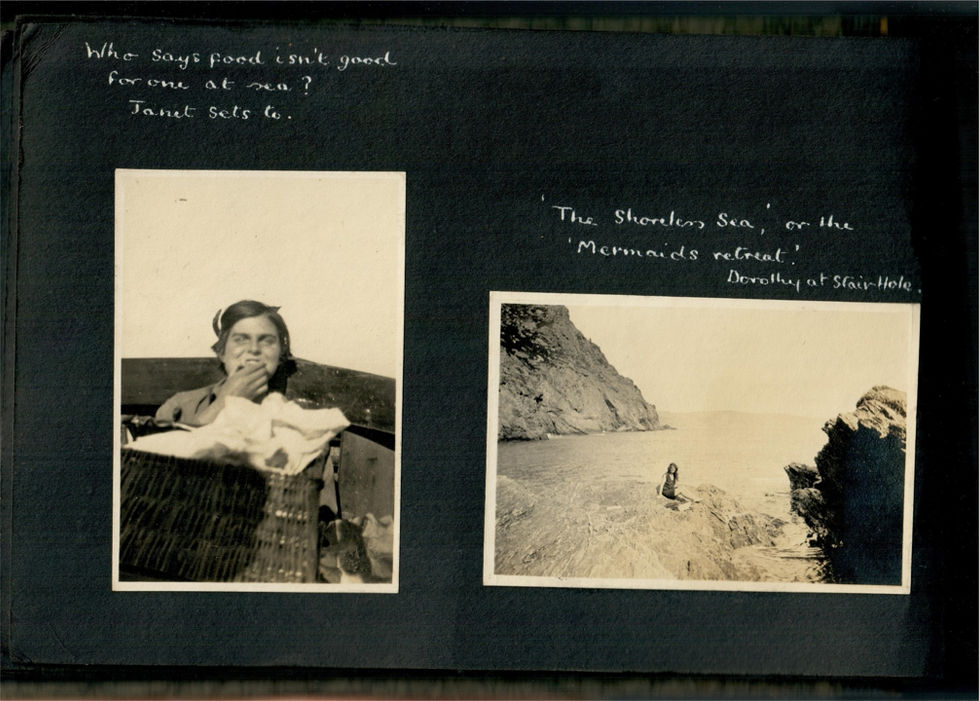 Who says food isn't good
for one at sea?
Janet sets to.
'The Shoreless Sea,' or the
'Mermaids retreat.'
Dorothy at Stair Hole.